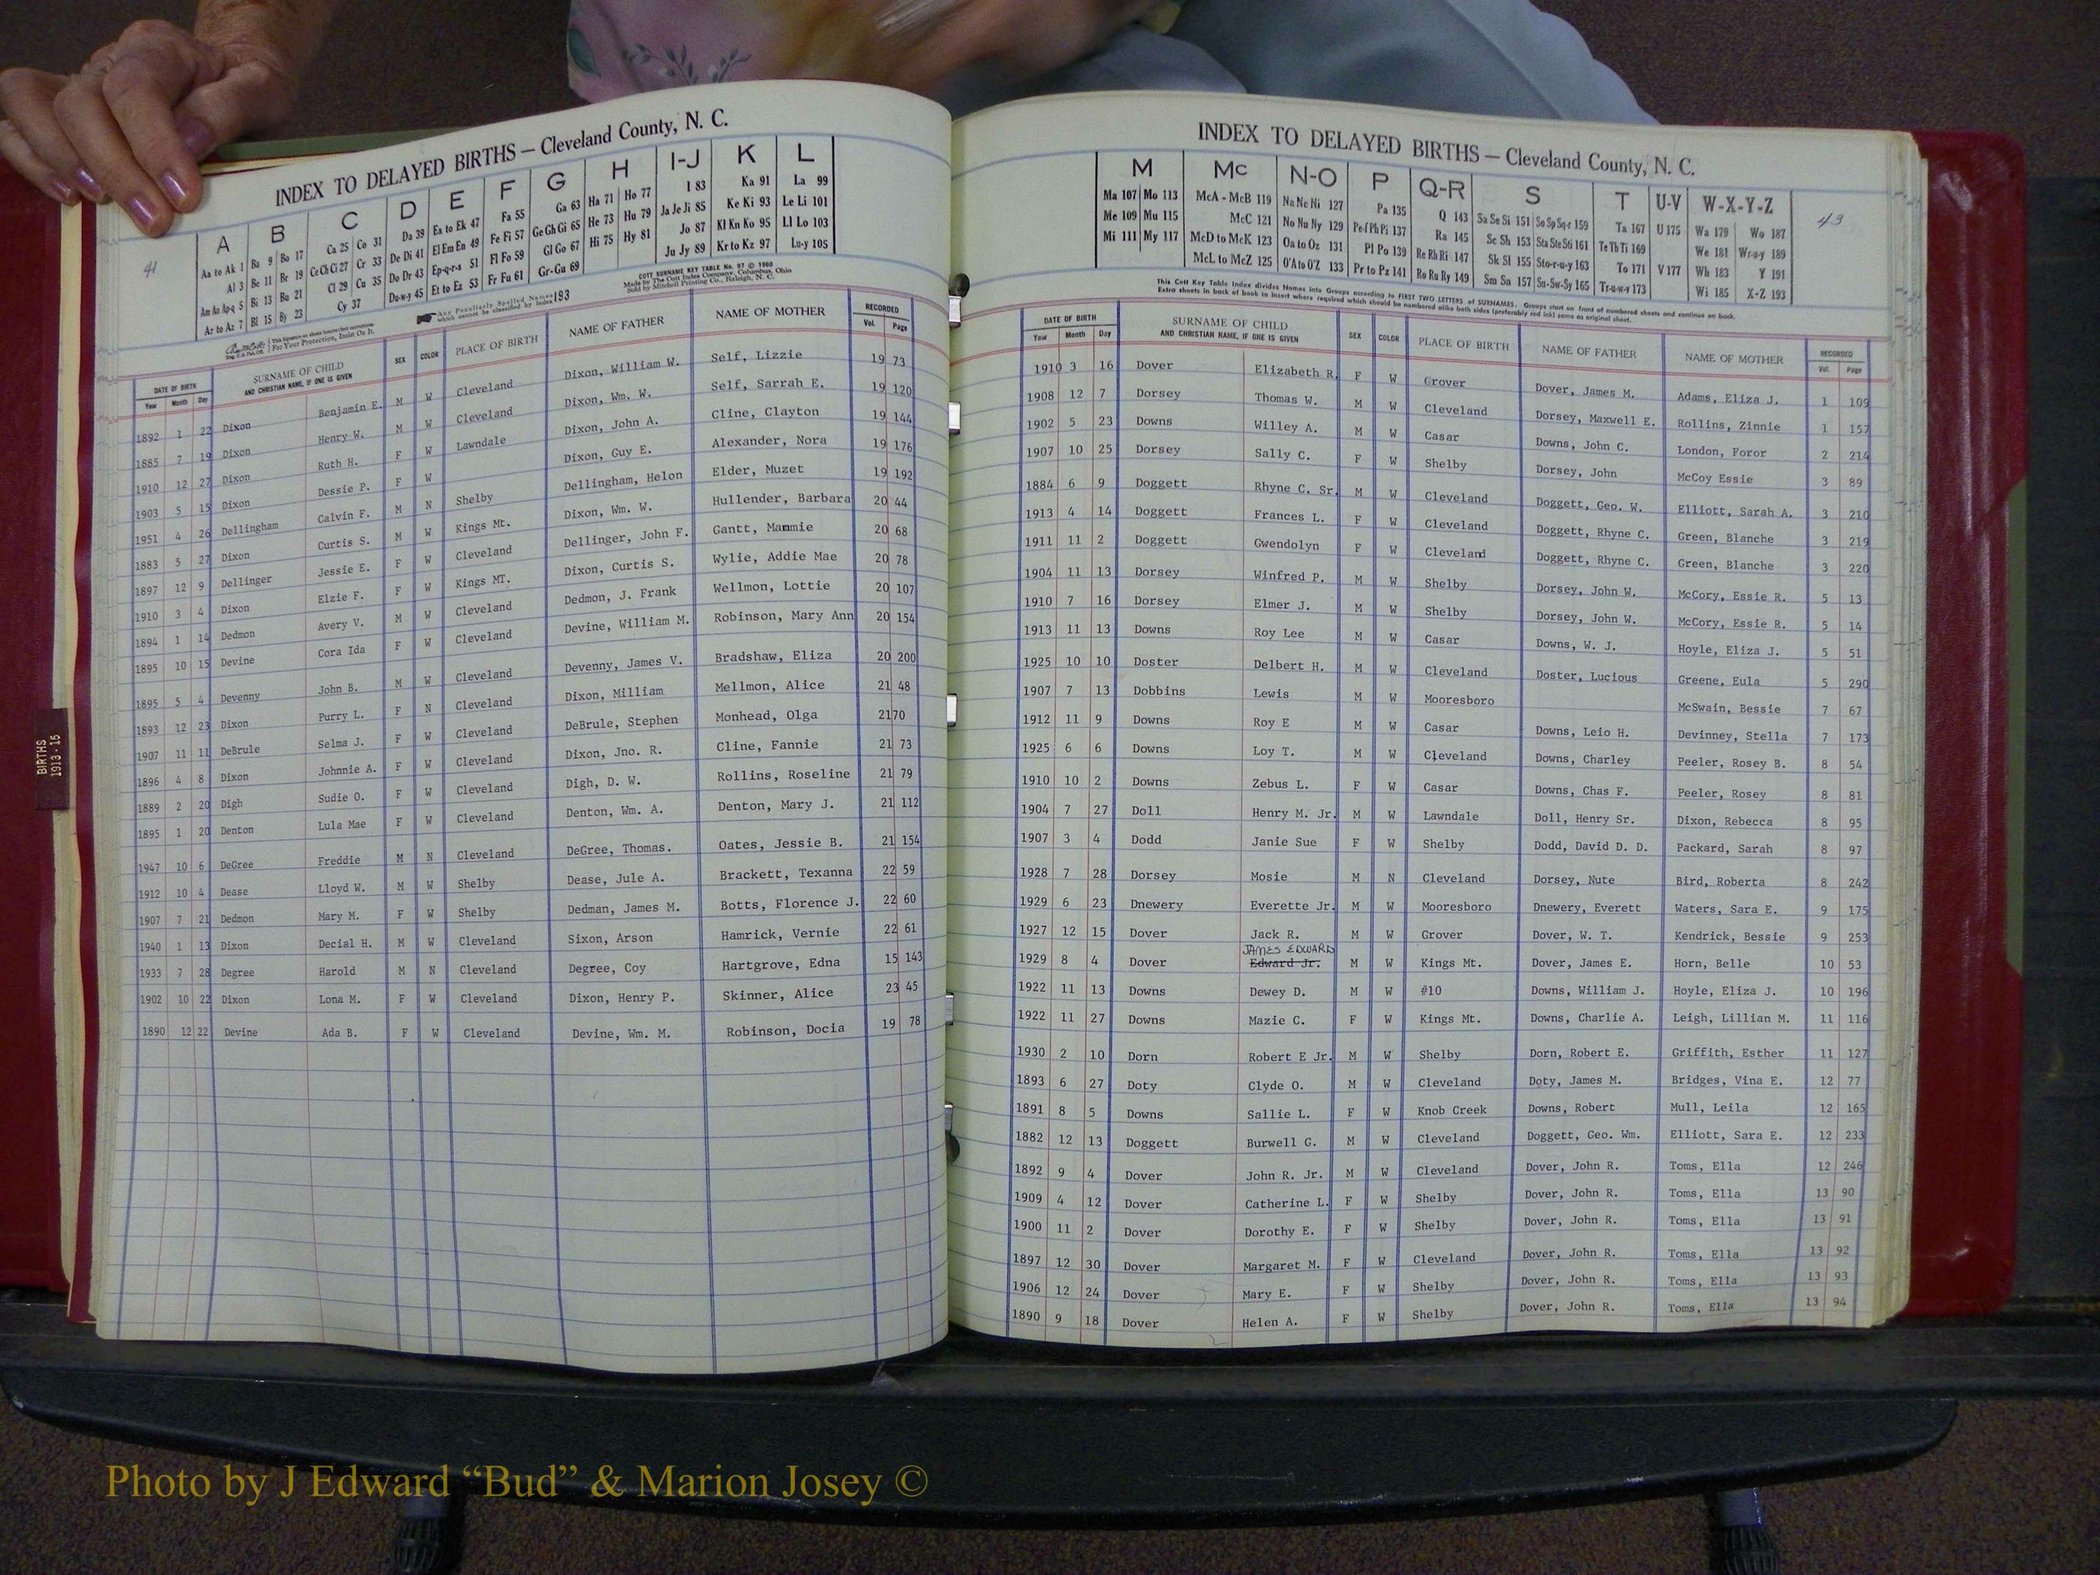 INDEX TO DELAYED BIRTHS — Cleveland County, N. C.
41
A B C D E F G H I-J K L
Aa to Ak 1 Ba 9 Bo 17 Ca 25 Co 31 Da 39 Ea to Ek 47 Fa 55 Ga 63 Ha 71 Ho 77 I 83 Ka 91 La 99
Al 3 Be 11 Br 19 Ce Ch Ci 27 Cr 33 De Di 41 El Em En 49 Fe Fi 57 Ge Gh Gi 65 He 73 Hu 79 Ja Je Ji 85 Ke Ki 93 Le Li 101
Am An Ap-q 5 Bi 13 Bu 21 Cl 29 Cu 35 Do Dr 43 Ep-q-r-s 51 Fl Fo 59 Gl Go 67 Hi 75 Hy 81 Jo 87 Kl Kn Ko 95 Ll Lo 103
Ar to Az 7 Bl 15 By 23 Cy 37 Du-w-y 45 Et to Ez 53 Fr Fu 61 Gr-Gu 69 Ju Jy 89 Kr to Kz 97 Lu-y 105
COTT SURNAME KEY TABLE No. 97 © 1960
Made by The Cott Index Company, Columbus, Ohio
Sold by Mitchell Printing Co., Raleigh, N. C.
Any Peculiarly Spelled Names which cannot be classified by Index 193
For Your Protection, Insist On It.
DATE OF BIRTH SURNAME OF CHILD SEX COLOR PLACE OF BIRTH NAME OF FATHER NAME OF MOTHER RECORDED
Year Month Day AND CHRISTIAN NAME, IF ONE IS GIVEN Vol. Page
1892 1 22 Dixon Benjamin E. M W Cleveland Dixon, William W. Self, Lizzie 19 73
1885 7 19 Dixon Henry W. M W Cleveland Dixon, Wm. W. Self, Sarrah E. 19 120
1910 12 27 Dixon Ruth H. F W Lawndale Dixon, John A. Cline, Clayton 19 144
1903 5 15 Dixon Dessie P. F W Dixon, Guy E. Alexander, Nora 19 176
1951 4 26 Dellingham Calvin F. M N Shelby Dellingham, Helon Elder, Muzet 19 192
1883 5 27 Dixon Curtis S. M W Kings Mt. Dixon, Wm. W. Hullender, Barbara 20 44
1897 12 9 Dellinger Jessie E. F W Cleveland Dellinger, John F. Gantt, Mammie 20 68
1910 3 4 Dixon Elzie F. F W Kings MT. Dixon, Curtis S. Wylie, Addie Mae 20 78
1894 1 14 Dedmon Avery V. M W Cleveland Dedmon, J. Frank Wellmon, Lottie 20 107
1895 10 15 Devine Cora Ida F W Cleveland Devine, William M. Robinson, Mary Ann 20 154
1895 5 4 Devenny John B. M W Cleveland Devenny, James V. Bradshaw, Eliza 20 200
1893 12 23 Dixon Purry L. F N Cleveland Dixon, Million Mellmon, Alice 21 48
1907 11 11 DeBrule Selma J. F W Cleveland DeBrule, Stephen Monhead, Olga 21 70
1896 4 8 Dixon Johnnie A. F W Cleveland Dixon, Jno. R. Cline, Fannie 21 73
1889 2 20 Digh Sudie O. F W Cleveland Digh, D. W. Rollins, Roseline 21 79
1895 1 20 Denton Lula Mae F W Cleveland Denton, Wm. A. Denton, Mary J. 21 112
1947 10 6 DeGree Freddie M N Cleveland DeGree, Thomas. Oates, Jessie B. 21 154
1912 10 4 Dease Lloyd W. M W Shelby Dease, Jule A. Brackett, Texanna 22 59
1907 7 21 Dedmon Mary M. F W Shelby Dedman, James M. Botts, Florence J. 22 60
1940 1 13 Dixon Decial H. M W Cleveland Sixon, Arson Hamrick, Vernie 22 61
1933 7 28 Degree Harold M N Cleveland Degree, Coy Hartgrove, Edna 15 143
1902 10 22 Dixon Lona M. F W Cleveland Dixon, Henry P. Skinner, Alice 23 45
1890 12 22 Devine Ada B. F W Cleveland Devine, Wm. M. Robinson, Docia 19 78
BIRTHS
1913-15
INDEX TO DELAYED BIRTHS — Cleveland County, N. C.
43
M Mc N-O P Q-R S T U-V W-X-Y-Z
Ma 107 Mo 113 McA - McB 119 Na Ne Ni 127 Pa 135 Q 143 Sa Se Si 151 So Sp Sq-r 159 Ta 167 U 175 Wa 179 Wo 187
Me 109 Mu 115 McC 121 No Nu Ny 129 Pe-f Ph Pi 137 Ra 145 Sc Sh 153 Sta Ste Sti 161 Te Th Ti 169 We 181 Wr-u-y 189
Mi 111 My 117 McD to McK 123 Oa to Oz 131 Pl Po 139 Re Rh Ri 147 Sk Sl 155 Sto-r-u-y 163 To 171 V 177 Wh 183 Y 191
McL to McZ 125 O'A to O'Z 133 Pr to Pz 141 Ro Ru Ry 149 Sm Sn 157 Su-Sw-Sy 165 Tr-u-w-y 173 Wi 185 X-Z 193
This Cott Key Table Index divides Names into Groups according to FIRST TWO LETTERS of SURNAMES. Groups start on front of numbered sheets and continue on back.
Extra sheets in back of book to insert where required which should be numbered alike both sides (preferably red ink) same as original sheet.
DATE OF BIRTH SURNAME OF CHILD SEX COLOR PLACE OF BIRTH NAME OF FATHER NAME OF MOTHER RECORDED
Year Month Day AND CHRISTIAN NAME, IF ONE IS GIVEN Vol. Page
1910 3 16 Dover Elizabeth R. F W Grover Dover, James M. Adams, Eliza J. 1 109
1908 12 7 Dorsey Thomas W. M W Cleveland Dorsey, Maxwell E. Rollins, Zinnie 1 157
1902 5 23 Downs Willey A. M W Casar Downs, John C. London, Foror 2 214
1907 10 25 Dorsey Sally C. F W Shelby Dorsey, John McCoy Essie 3 89
1884 6 9 Doggett Rhyne C. Sr. M W Cleveland Doggett, Geo. W. Elliott, Sarah A. 3 210
1913 4 14 Doggett Frances L. F W Cleveland Doggett, Rhyne C. Green, Blanche 3 219
1911 11 2 Doggett Gwendolyn F W Cleveland Doggett, Rhyne C. Green, Blanche 3 220
1904 11 13 Dorsey Winfred P. M W Shelby Dorsey, John W. McCory, Essie R. 5 13
1910 7 16 Dorsey Elmer J. M W Shelby Dorsey, John W. McCory, Essie R. 5 14
1913 11 13 Downs Roy Lee M W Casar Downs, W. J. Hoyle, Eliza J. 5 51
1925 10 10 Doster Delbert H. M W Cleveland Doster, Lucious Greene, Eula 5 290
1907 7 13 Dobbins Lewis M W Mooresboro McSwain, Bessie 7 67
1912 11 9 Downs Roy E M W Casar Downs, Leio H. Devinney, Stella 7 173
1925 6 6 Downs Loy T. M W Cleveland Downs, Charley Peeler, Rosey B. 8 54
1910 10 2 Downs Zebus L. F W Casar Downs, Chas F. Peeler, Rosey 8 81
1904 7 27 Doll Henry M. Jr. M W Lawndale Doll, Henry Sr. Dixon, Rebecca 8 95
1907 3 4 Dodd Janie Sue F W Shelby Dodd, David D. D. Packard, Sarah 8 97
1928 7 28 Dorsey Mosie M N Cleveland Dorsey, Nute Bird, Roberta 8 242
1929 6 23 Dnewery Everette Jr. M W Mooresboro Dnewery, Everett Waters, Sara E. 9 175
1927 12 15 Dover Jack R. M W Grover Dover, W. T. Kendrick, Bessie 9 253
JAMES EDWARD
1929 8 4 Dover Edward Jr. M W Kings Mt. Dover, James E. Horn, Belle 10 53
1922 11 13 Downs Dewey D. M W #10 Downs, William J. Hoyle, Eliza J. 10 196
1922 11 27 Downs Mazie C. F W Kings Mt. Downs, Charlie A. Leigh, Lillian M. 11 116
1930 2 10 Dorn Robert E Jr. M W Shelby Dorn, Robert E. Griffith, Esther 11 127
1893 6 27 Doty Clyde O. M W Cleveland Doty, James M. Bridges, Vina E. 12 77
1891 8 5 Downs Sallie L. F W Knob Creek Downs, Robert Mull, Leila 12 165
1882 12 13 Doggett Burwell G. M W Cleveland Doggett, Geo. Wm. Elliott, Sara E. 12 233
1892 9 4 Dover John R. Jr. M W Cleveland Dover, John R. Toms, Ella 12 246
1909 4 12 Dover Catherine L. F W Shelby Dover, John R. Toms, Ella 13 90
1900 11 2 Dover Dorothy E. F W Shelby Dover, John R. Toms, Ella 13 91
1897 12 30 Dover Margaret M. F W Cleveland Dover, John R. Toms, Ella 13 92
1906 12 24 Dover Mary E. F W Shelby Dover, John R. Toms, Ella 13 93
1890 9 18 Dover Helen A. F W Shelby Dover, John R. Toms, Ella 13 94
Photo by J Edward “Bud” & Marion Josey ©